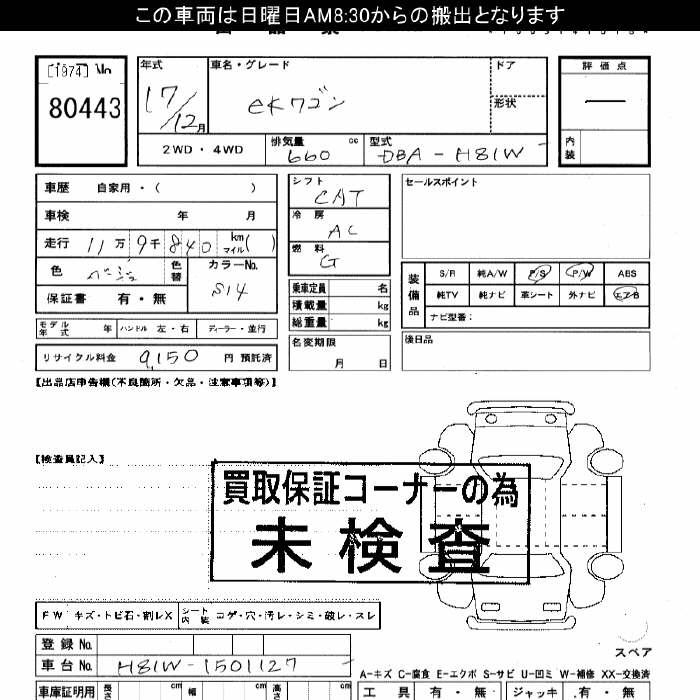 この車両は日曜日AM8:30からの搬出となります
[1974] No
80443
年式
17/12月
車名・グレード
eKワゴン
ドア
形状
評価点
内装
2WD・4WD
排気量 660 cc
型式 DBA-H81W
車歴 自家用・( )
車検 年 月
走行 11万9千840 km マイル( )
色 ベージュ 色替
カラーNo. S14
保証書 有・無
モデル年式 年 ハンドル 左・右 ディーラー・並行
リサイクル料金 9,150 円 預託済
シフト CAT
冷房 AC
燃料 G
乗車定員 名
積載量 kg
総重量 kg
名変期限
月 日
セールスポイント
装備品
S/R 純A/W P/S P/W ABS
純TV 純ナビ 革シート 外ナビ エアB
ナビ型番：
後日品
【出品店申告欄(不良箇所・欠品・注意事項等)】
【検査員記入】
買取保証コーナーの為
未検査
FW キズ・トビ石・割レX シート内装 コゲ・穴・汚レ・シミ・破レ・スレ
登録No.
車台No. H81W-1501127
スペア
A-キズ C-腐食 E-エクボ S-サビ U-凹ミ W-補修 XX-交換済
車庫証明用 長さ cm 幅 cm 高さ cm
工具 有・無 ジャッキ 有・無